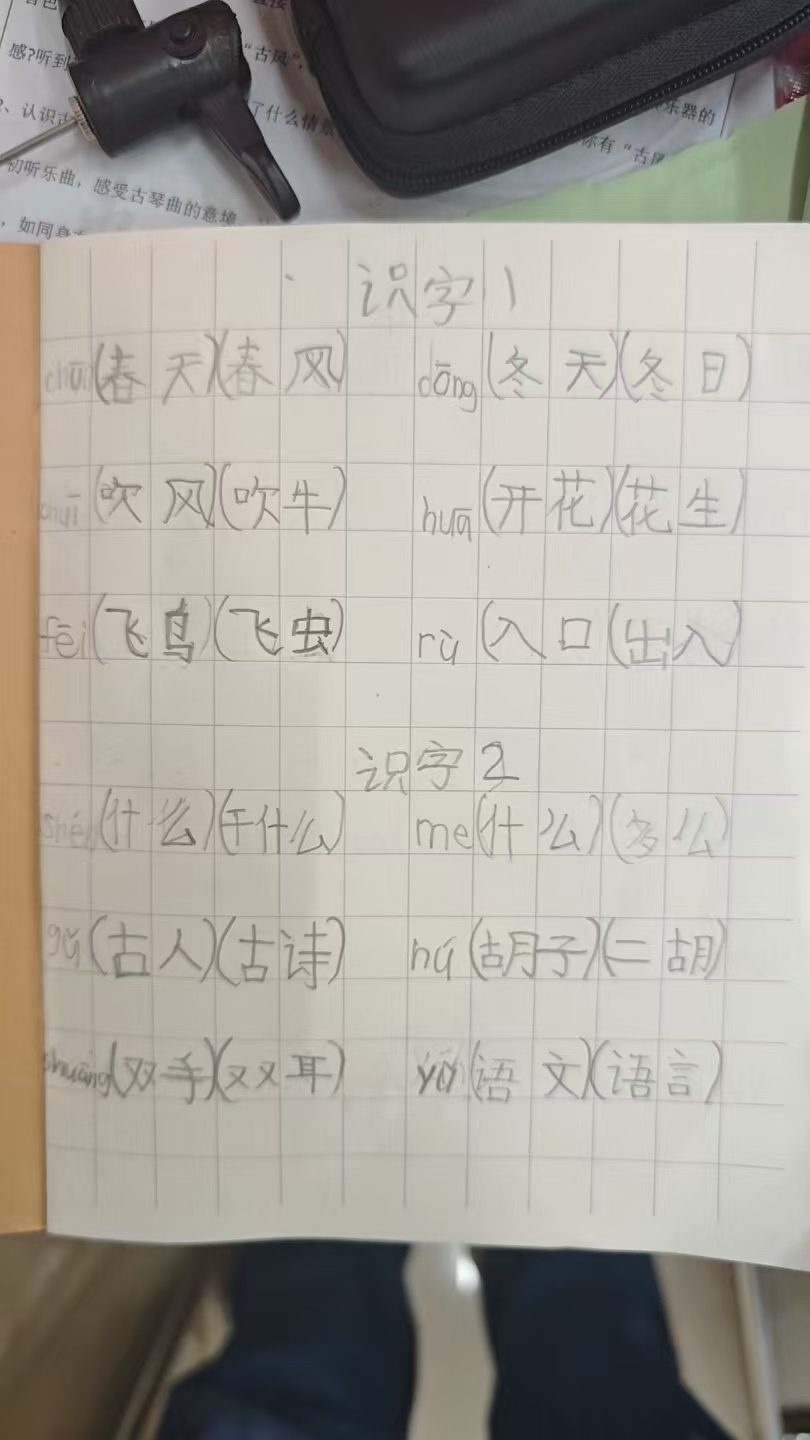 感?听到 "古风",
、认识古 了什么情景 乐器的
初听乐曲，感受古琴曲的意境 你有"古风
，如同身
识字1
chūn(春天)(春风) dōng(冬天)(冬日)
chuī(吹风)(吹牛) huā(开花)(花生)
fēi(飞鸟)(飞虫) rù(入口(出入)
识字2
shén(什么)(干什么) me(什么)(多么)
gǔ(古人)(古诗) hú(胡子)(二胡)
shuāng(双手)(双耳) yǔ(语文)(语言)